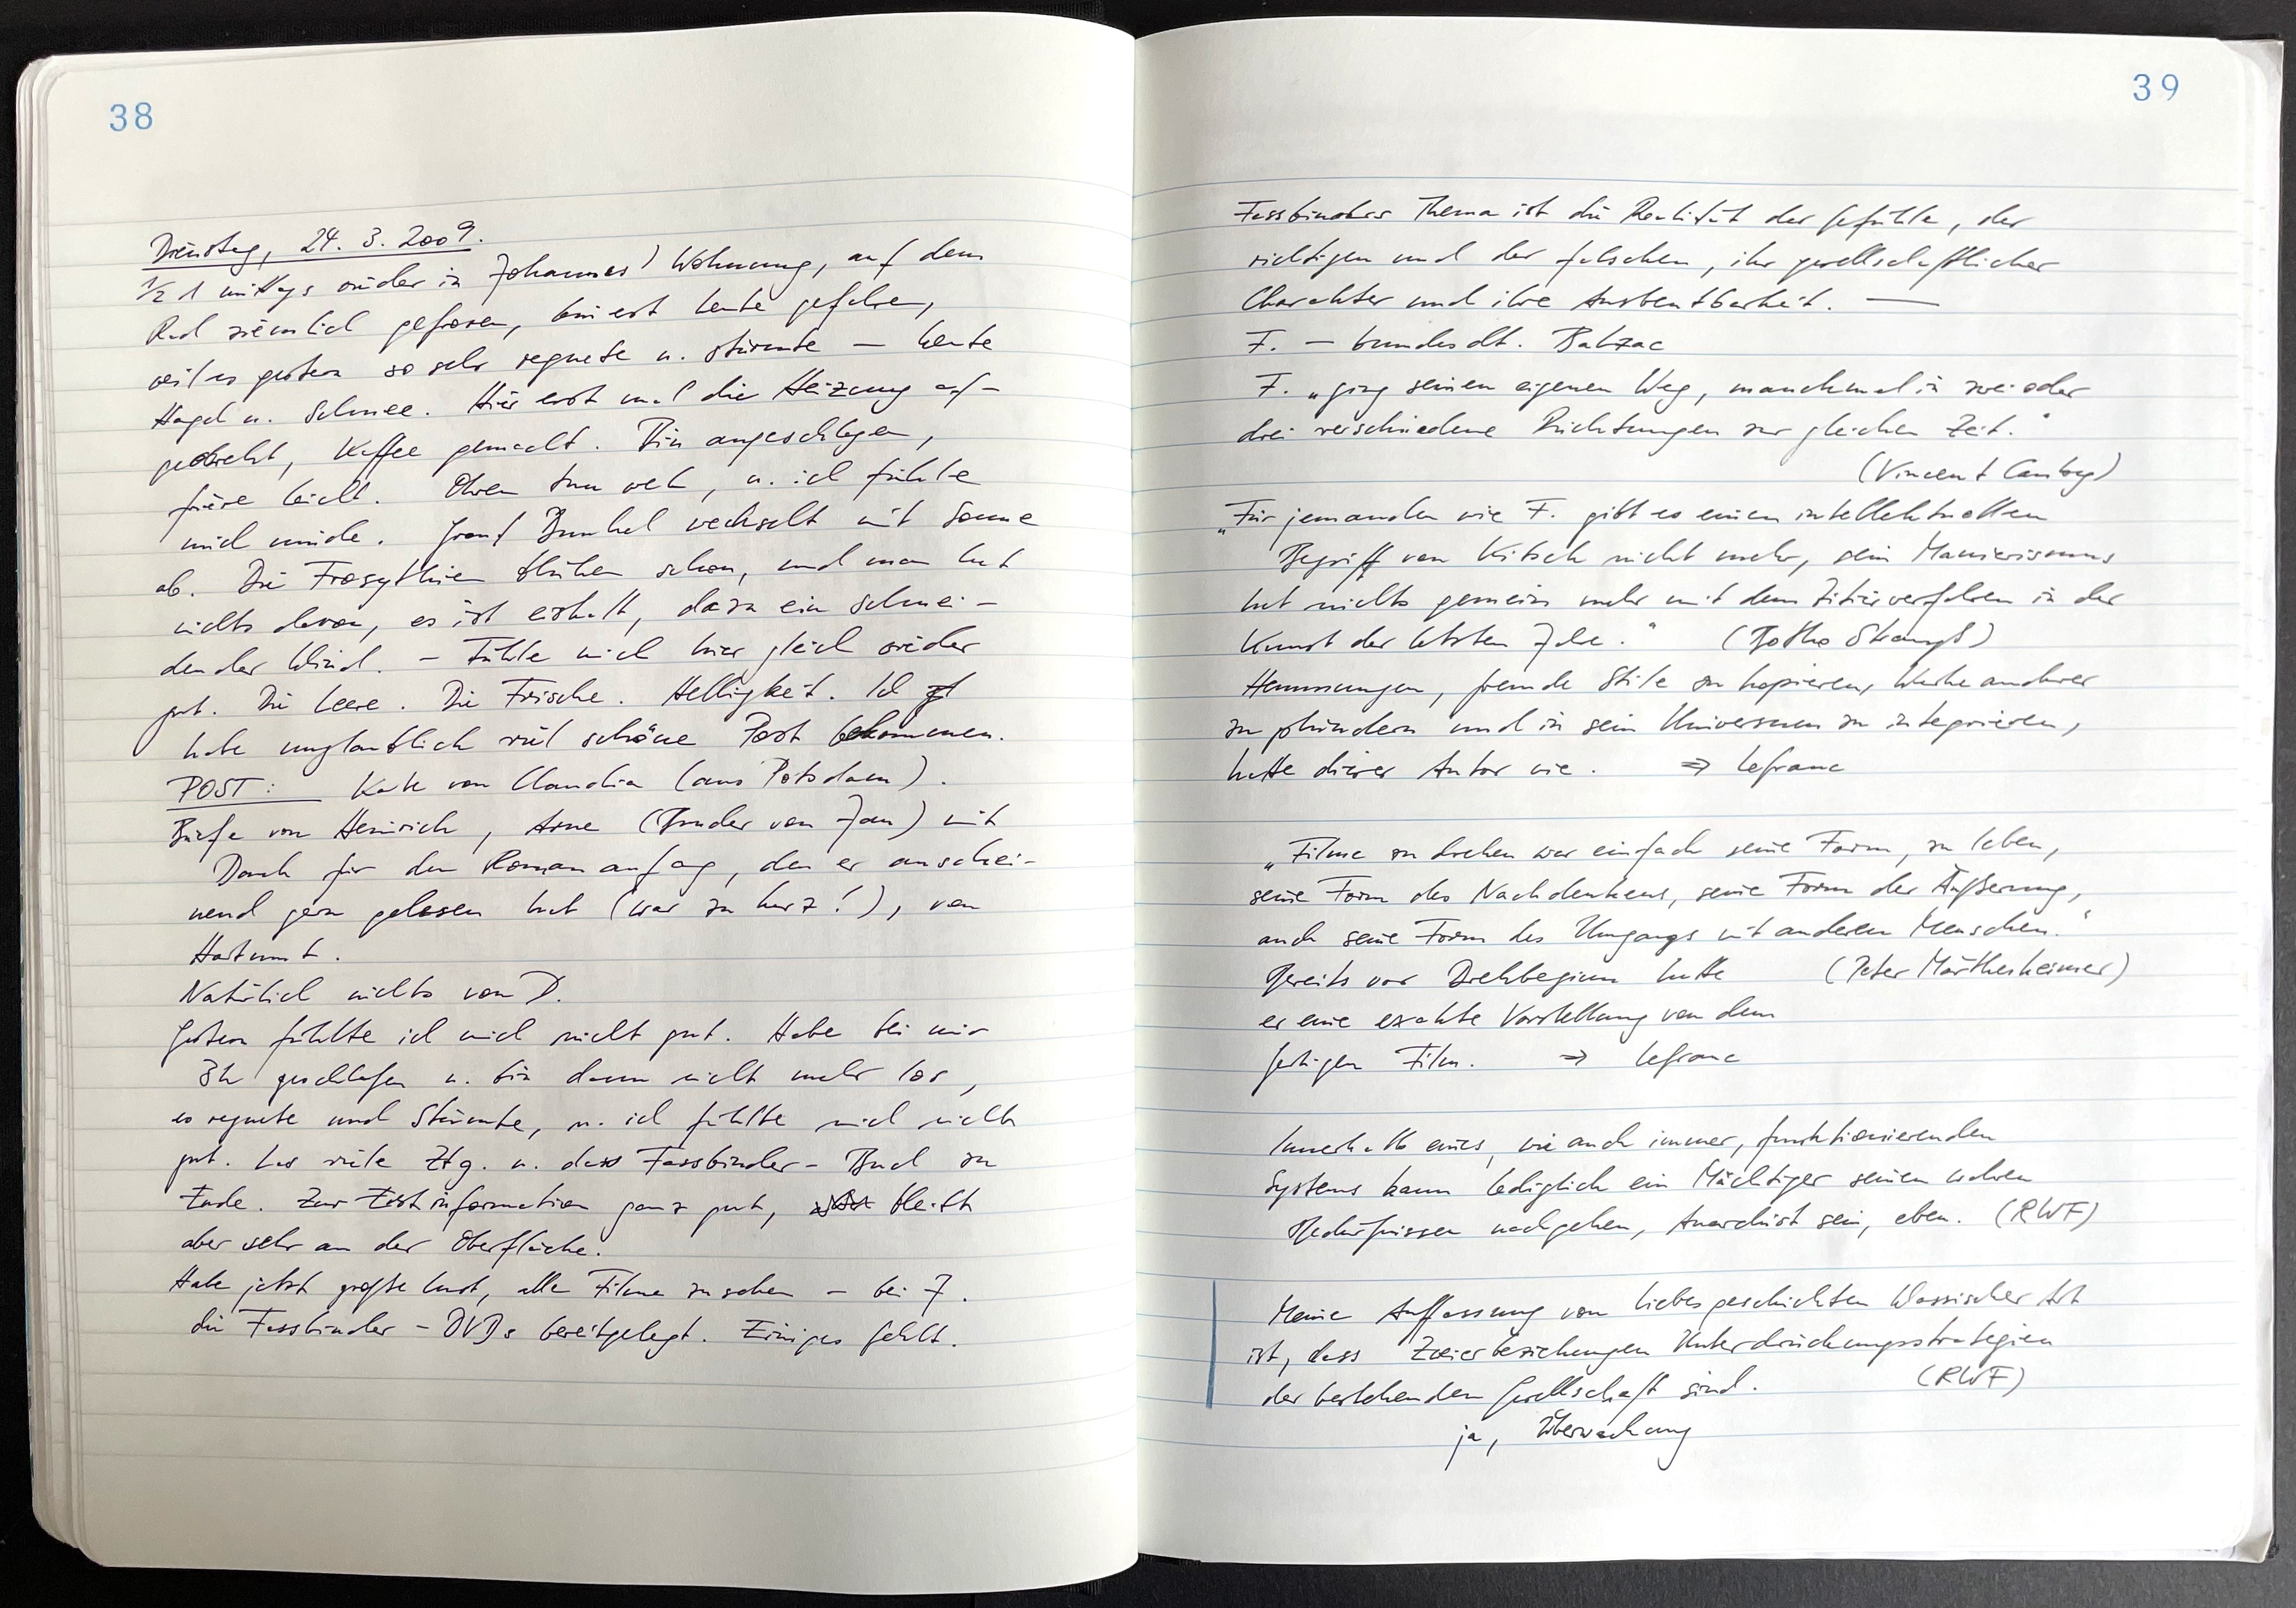 38
Dienstag, 24. 3. 2009.
1/2 1 mittags wieder in Johannes' Wohnung, auf dem
Rad ziemlich gefroren, bin erst heute gefahren,
weil es gestern so sehr regnete u. stürmte – heute
Hagel u. Schnee. Hier erst mal die Heizung auf-
gedreht, Kaffee gemacht. Bin angeschlagen,
friere leicht. Ohren tun weh, u. ich fühle
mich müde. Grauf Dunkel wechselt mit Sonne
ab. Die Frosythien blühen schon, und man hat
nichts davon, es ist eiskalt, dazu ein schnei-
dender Wind. – Fühle mich hier gleich wieder
gut. Die Leere. Die Frische. Helligkeit. Ich
habe unglaublich viel schöne Post bekommen.
POST: Karte von Claudia (aus Potsdam).
Briefe von Heinrich, Arne (Bruder von Jan) mit
Dank für den Romananfang, den er anschei-
nend gern gelesen hat (war zu kurz!), von
Hartmut.
Natürlich nichts von D.
Gestern fühlte ich mich nicht gut. Habe bei mir
3h geschlafen u. bin dann nicht mehr los,
es regnete und stürmte, u. ich fühlte mich nicht
gut. Las viele Ztg. u. dass Fassbinder-Buch zu
Ende. Zur Erstinformation ganz gut, bleibt
aber sehr an der Oberfläche.
Habe jetzt große Lust, alle Filme zu sehen – bei J.
die Fassbinder-DVDs bereitgelegt. Einiges fehlt.
39
Fassbinders Thema ist die Realität der Gefühle, der
richtigen und der falschen, ihr gesellschaftlicher
Charakter und ihre Ausbeutbarkeit. —
F. – bundesdt. Balzac
F. „ging seinen eigenen Weg, manchmal in zwei oder
drei verschiedene Richtungen zur gleichen Zeit."
(Vincent Canby)
„Für jemanden wie F. gibt es einen intellektuellen
Begriff von Kitsch nicht mehr, sein Manierismus
hat nichts gemein mehr mit dem Zitierverfahren in der
Kunst der letzten Jahre." (Botho Strauß)
Hemmungen, fremde Stile zu kopieren, Werke anderer
zu plündern und in sein Universum zu integrieren,
hatte dieser Autor nie. ⇒ Lefranc
„Filme zu drehen war einfach seine Form, zu leben,
seine Form des Nachdenkens, seine Form der Äußerung,
auch seine Form des Umgangs mit anderen Menschen."
Bereits vor Drehbeginn hatte (Peter Märthesheimer)
er eine exakte Vorstellung von dem
fertigen Film. ⇒ Lefranc
Innerhalb eines, wie auch immer, funktionierenden
Systems kann lediglich ein Mächtiger seinen wahren
Bedürfnissen nachgehen, Anarchist sein, eben. (RWF)
Meine Auffassung von Liebesgeschichten klassischer Art
ist, dass Zweierbeziehungen Unterdrückungsstrategien
der bestehenden Gesellschaft sind. (RWF)
ja, Überwachung